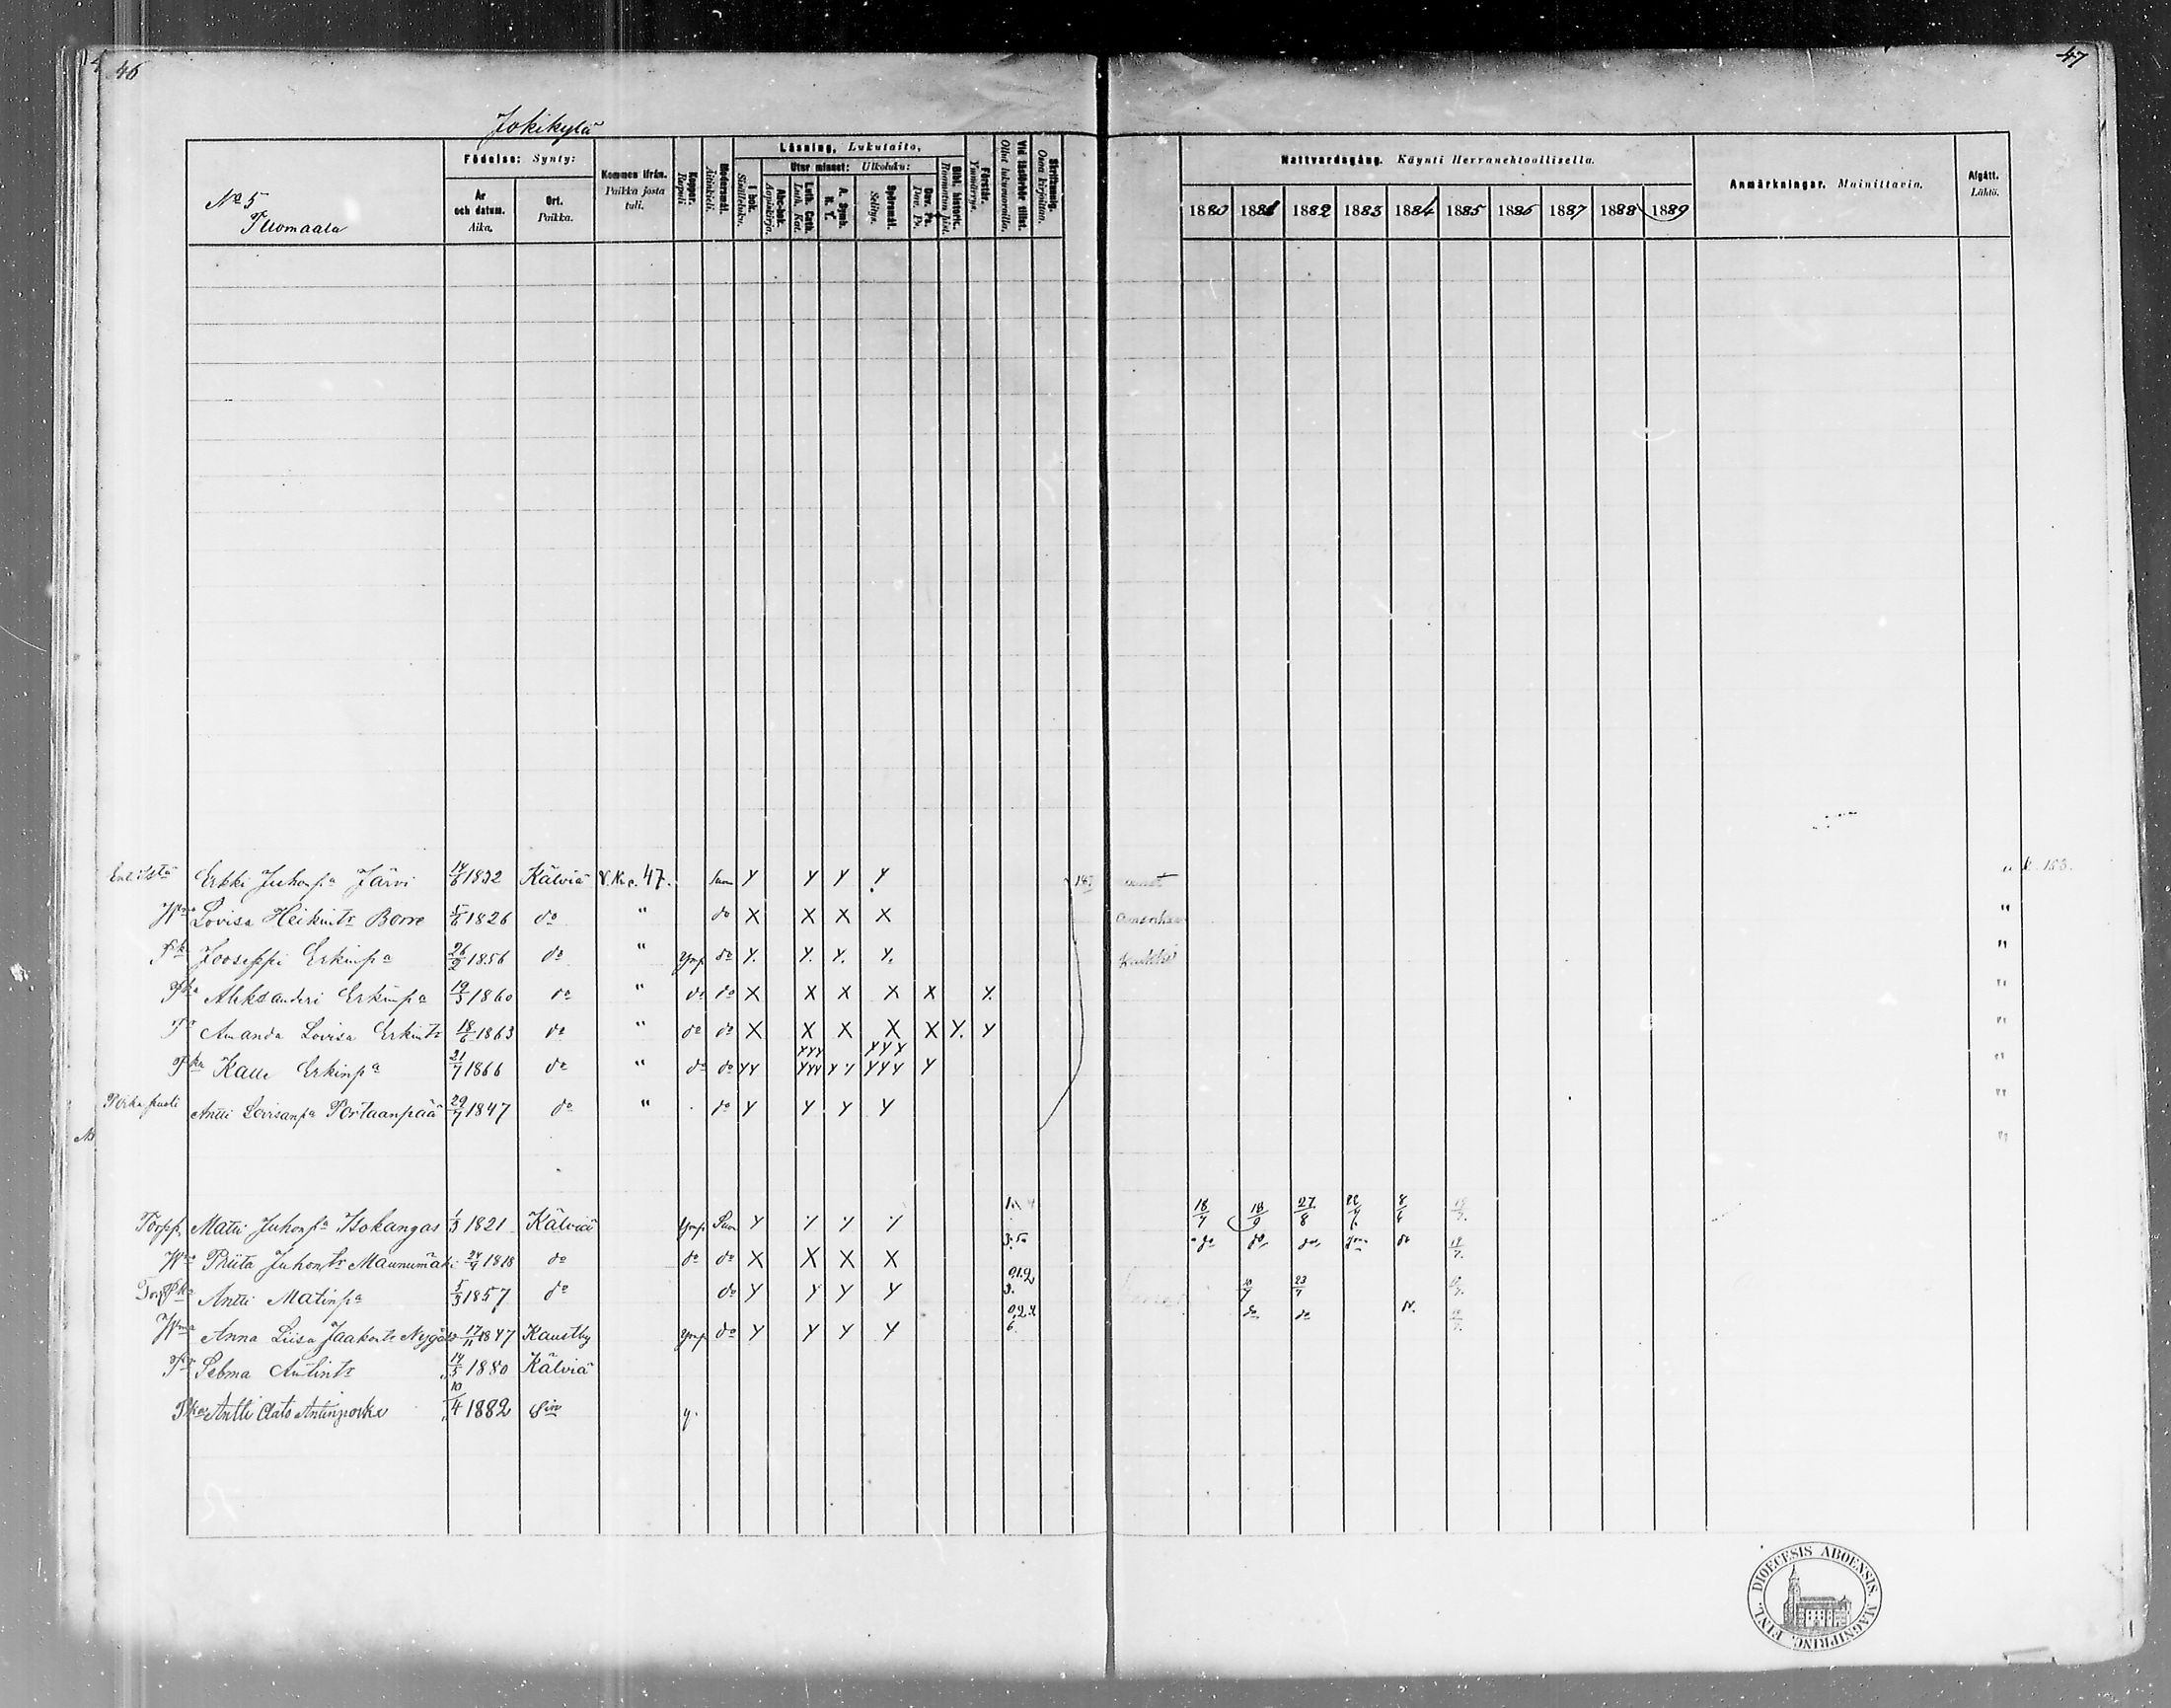 46
47
Jokikylä
No 5
Tuomaala
Födelse: Synty:
År och datum. Aika.
Ort. Paikka.
Kommen ifrån. Paikka josta tuli.
Koppor. Rupuli.
Modersmål. Äitinkieli.
Läsning, Lukutaito,
I bok. Sisäluku.
Utur minnet: Ulkoluku:
Abc-bok. Aapiskirja.
Luth. Cath. Luth. Kat.
A. Symb. H. T.
Spörsmål. Selitys.
Dav. Ps. Dav. Ps.
Bibl. historie. Raamatun hist.
Förstår. Ymmärrys.
Vid läsförhör tillst. Ollut lukuvuorolla.
Skrifkunnig. Osaa kirjoittaa.
Nattvardsgång. Käynti Herranehtoollisella.
1880 1881 1882 1883 1884 1885 1886 1887 1888 1889
Anmärkningar. Muistettavia.
Afgått. Lähtö.
Erkki Juhonpa Järvi 14/6 1832 Kälviä V.K.s. 47. Suom Y Y Y Y
Wmo Lovisa Heikints Borre 5/6 1826 do " do X X X X
Pka Jooseppi Erkinpa 26/2 1856 do " ymp do Y. Y. Y. Y.
Pka Aleksanderi Erkinpa 19/3 1860 do " do do X X X X X Y.
Tr Amanda Lovisa Erkints 18/6 1863 do " do do X X X X X Y. Y
Pka Kalle Erkinpa 21/7 1866 do " do do YY YYY YY YYY Y
Poika puoli Antti Lovisanpa Portaanpää 29/7 1847 do " do Y Y Y Y
Torpp. Matti Juhonpa Isokangas 1/3 1821 Kälviä ymp Suom Y Y Y Y 18/7 18/9 27/8 8/6
Wmo Priita Juhonts Maunumäki 24/9 1818 do do do X X X X do do do do
Antti Matinpa 5/3 1857 do do Y Y Y Y 23/7
Wmo Anna Liisa Jaakonts Nygård 17/11 1847 Kaustby ymp do Y Y Y Y do do
Tr Selma Antints 14/5 1880 Kälviä
Pka Antti Anto Antinpoika 10/4 1882 y.
DIOECESIS ABOENSIS MAGNIPRINC. FINL.